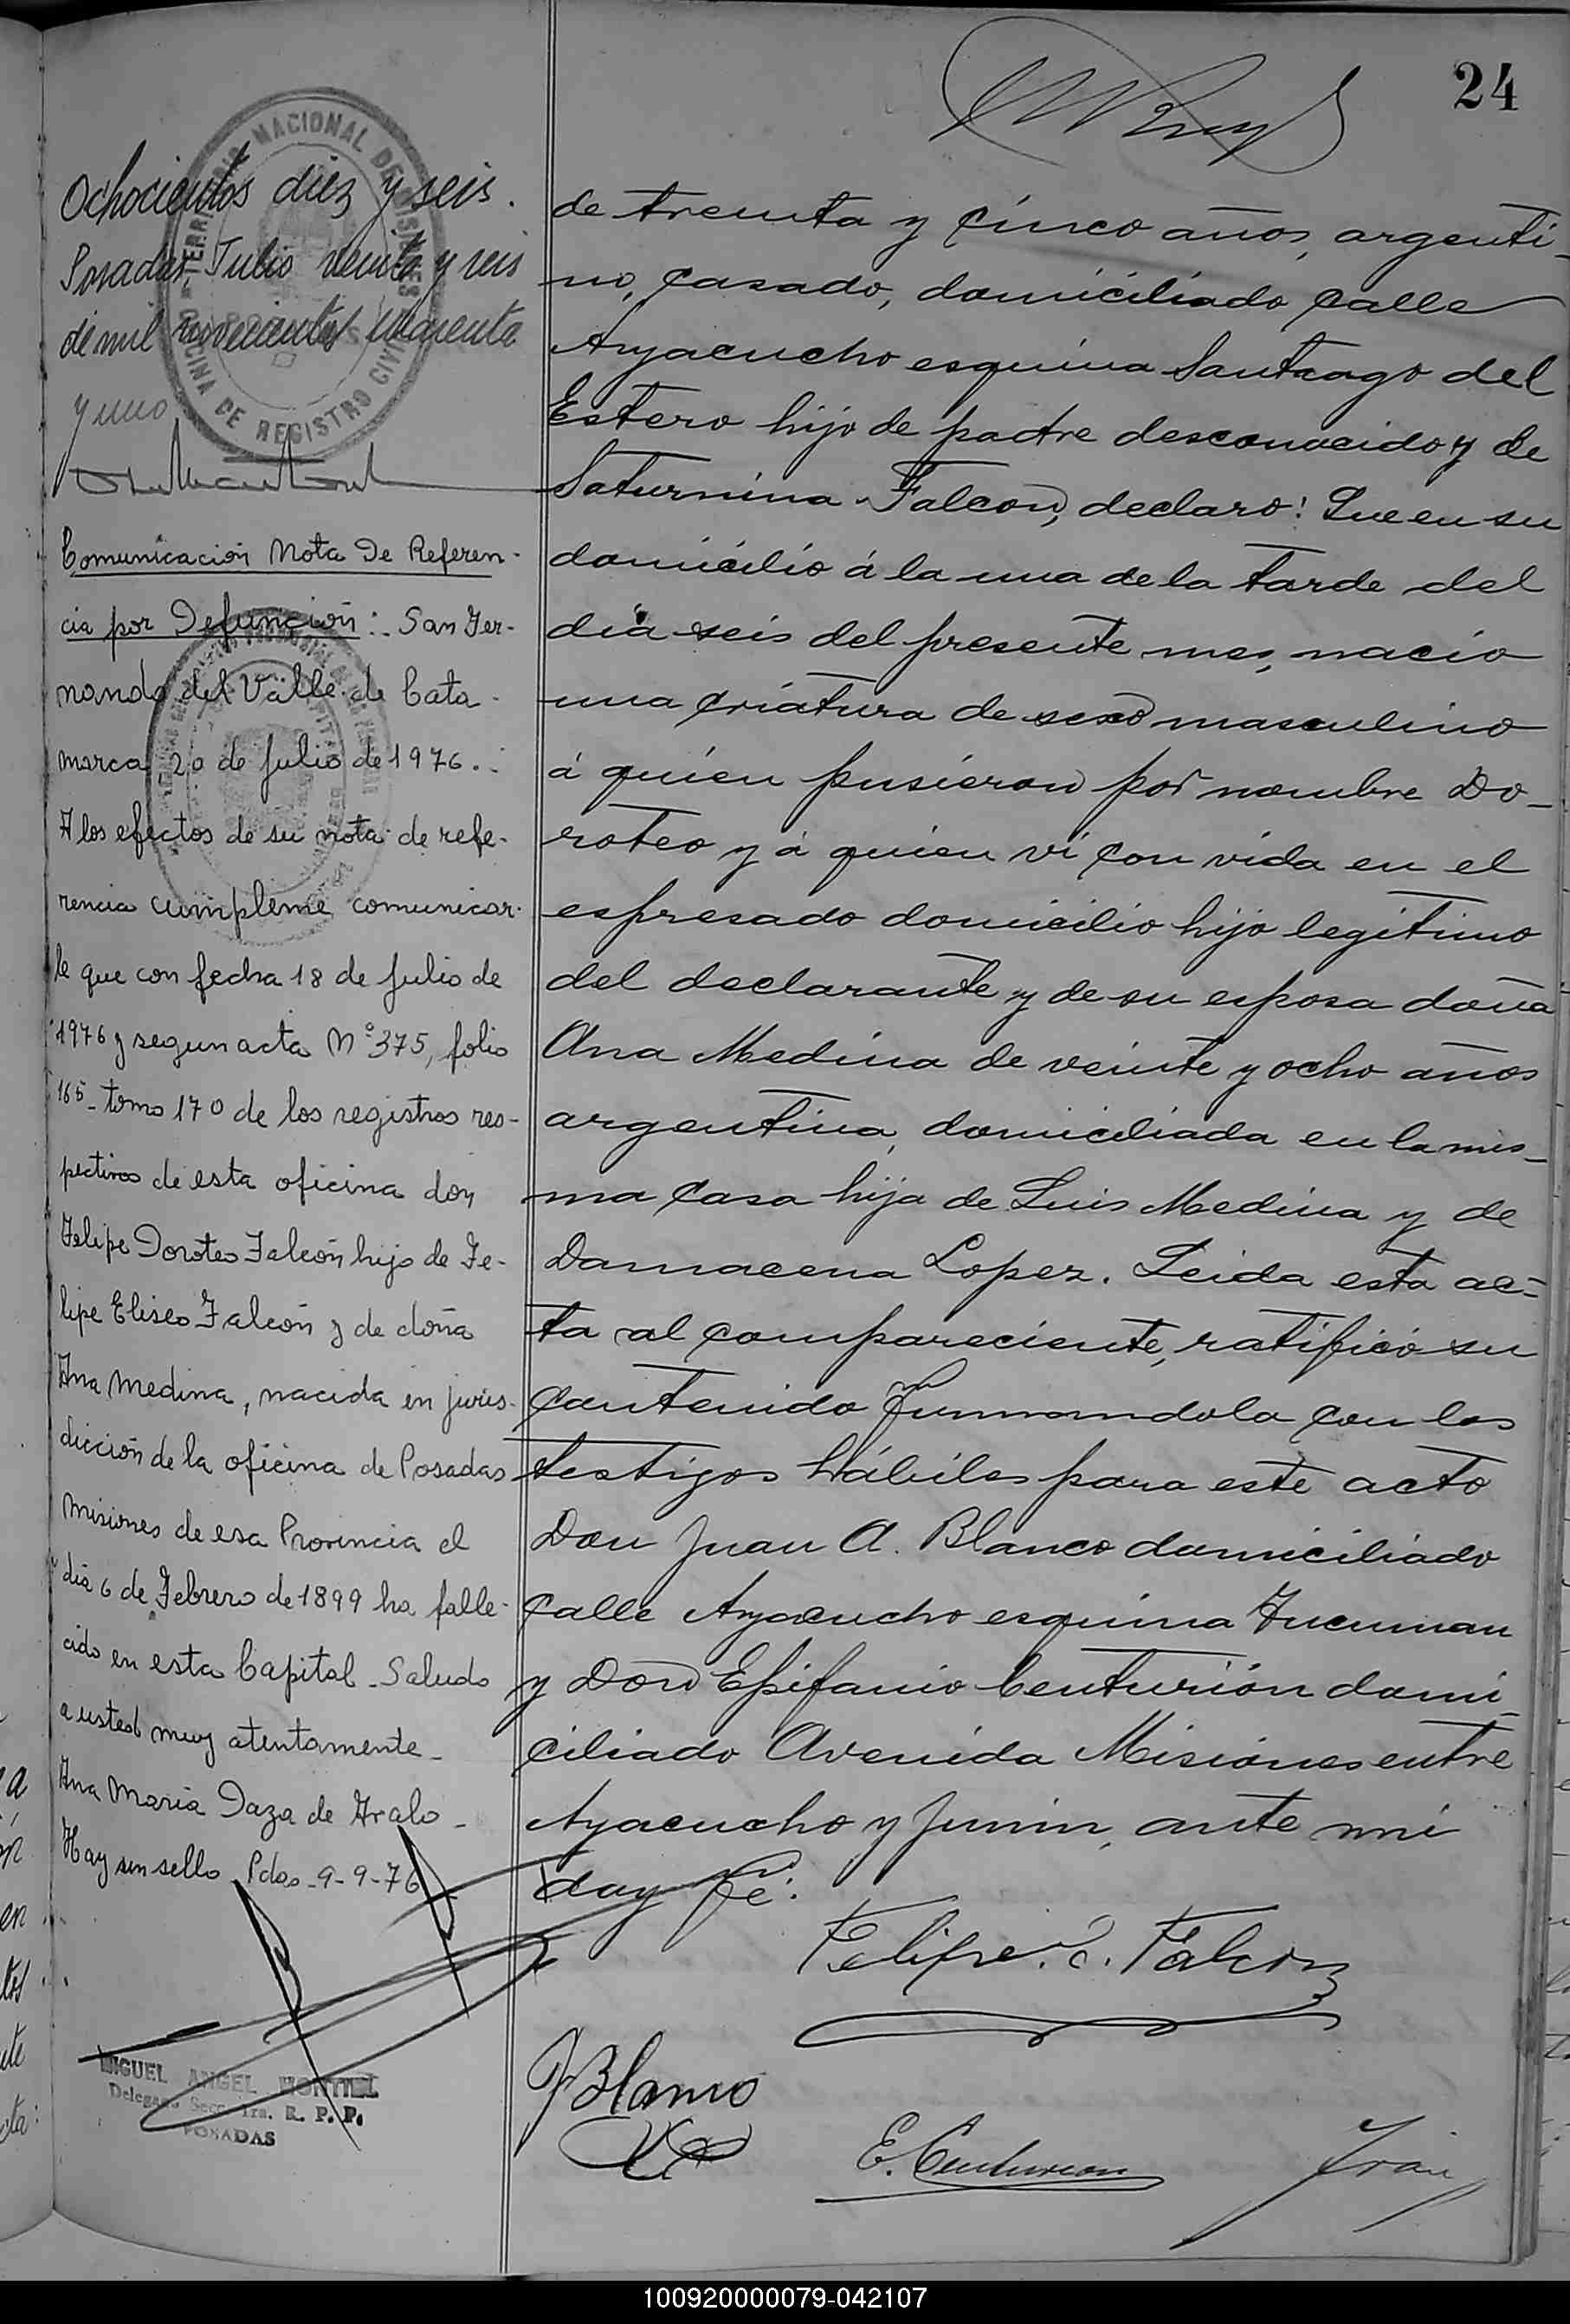 24
Ochocientos diez y seis.
Posadas, Julio veinte y seis
de mil novecientos cuarenta
y uno
TERRITORIO NACIONAL DE MISIONES
OFICINA DE REGISTRO CIVIL
Comunicación Nota De Referen-
cia por Defunción:. San Fer-
nando del Valle de Cata-
marca 20 de Julio de 1976.:
A los efectos de su nota de refe-
rencia cumpleme comunicar-
le que con fecha 18 de Julio de
1976 y segun acta Nº 375, folio
165- tomo 170 de los registros res-
pectivos de esta oficina don
Felipe Doroteo Falcón hijo de Fe-
lipe Eliseo Falcón y de doña
Ana Medina, nacida en juris-
dicción de la oficina de Posadas
Misiones de esa Provincia el
día 6 de Febrero de 1899 ha falle-
cido en esta Capital - Saludo
a usted muy atentamente -
Ana Maria Daza de Aralo -
Hay un sello Pdas - 9-9-76
MIGUEL ANGEL
R. P. P.
POSADAS
de treinta y cinco años, argenti-
no, casado, domiciliado calle
Ayacucho esquina Santiago del
Estero hijo de padre desconocido y de
Saturnina Falcon, declaro: Que en su
domicilio á la una de la tarde del
día seis del presente mes, nacio
una criatura de sexo masculino
á quien pusieron por nombre Do-
roteo y á quien vi con vida en el
espresado domicilio hijo legitimo
del declarante y de su esposa doña
Ana Medina de veinte y ocho años
argentina, domiciliada en la mis-
ma casa hija de Luis Medina y de
Damacena Lopez. Leida esta ac-
ta al compareciente, ratificó su
contenido firmandola con los
testigos hábiles para este acto
Don Juan A. Blanco domiciliado
calle Ayacucho esquina Tucuman
y Don Epifanio Centurión domi-
ciliado Avenida Misiones entre
Ayacucho y Junin, ante mi
doy fé.
Felipe E. Falcon
J Blanco
E. Centurion
100920000079-042107